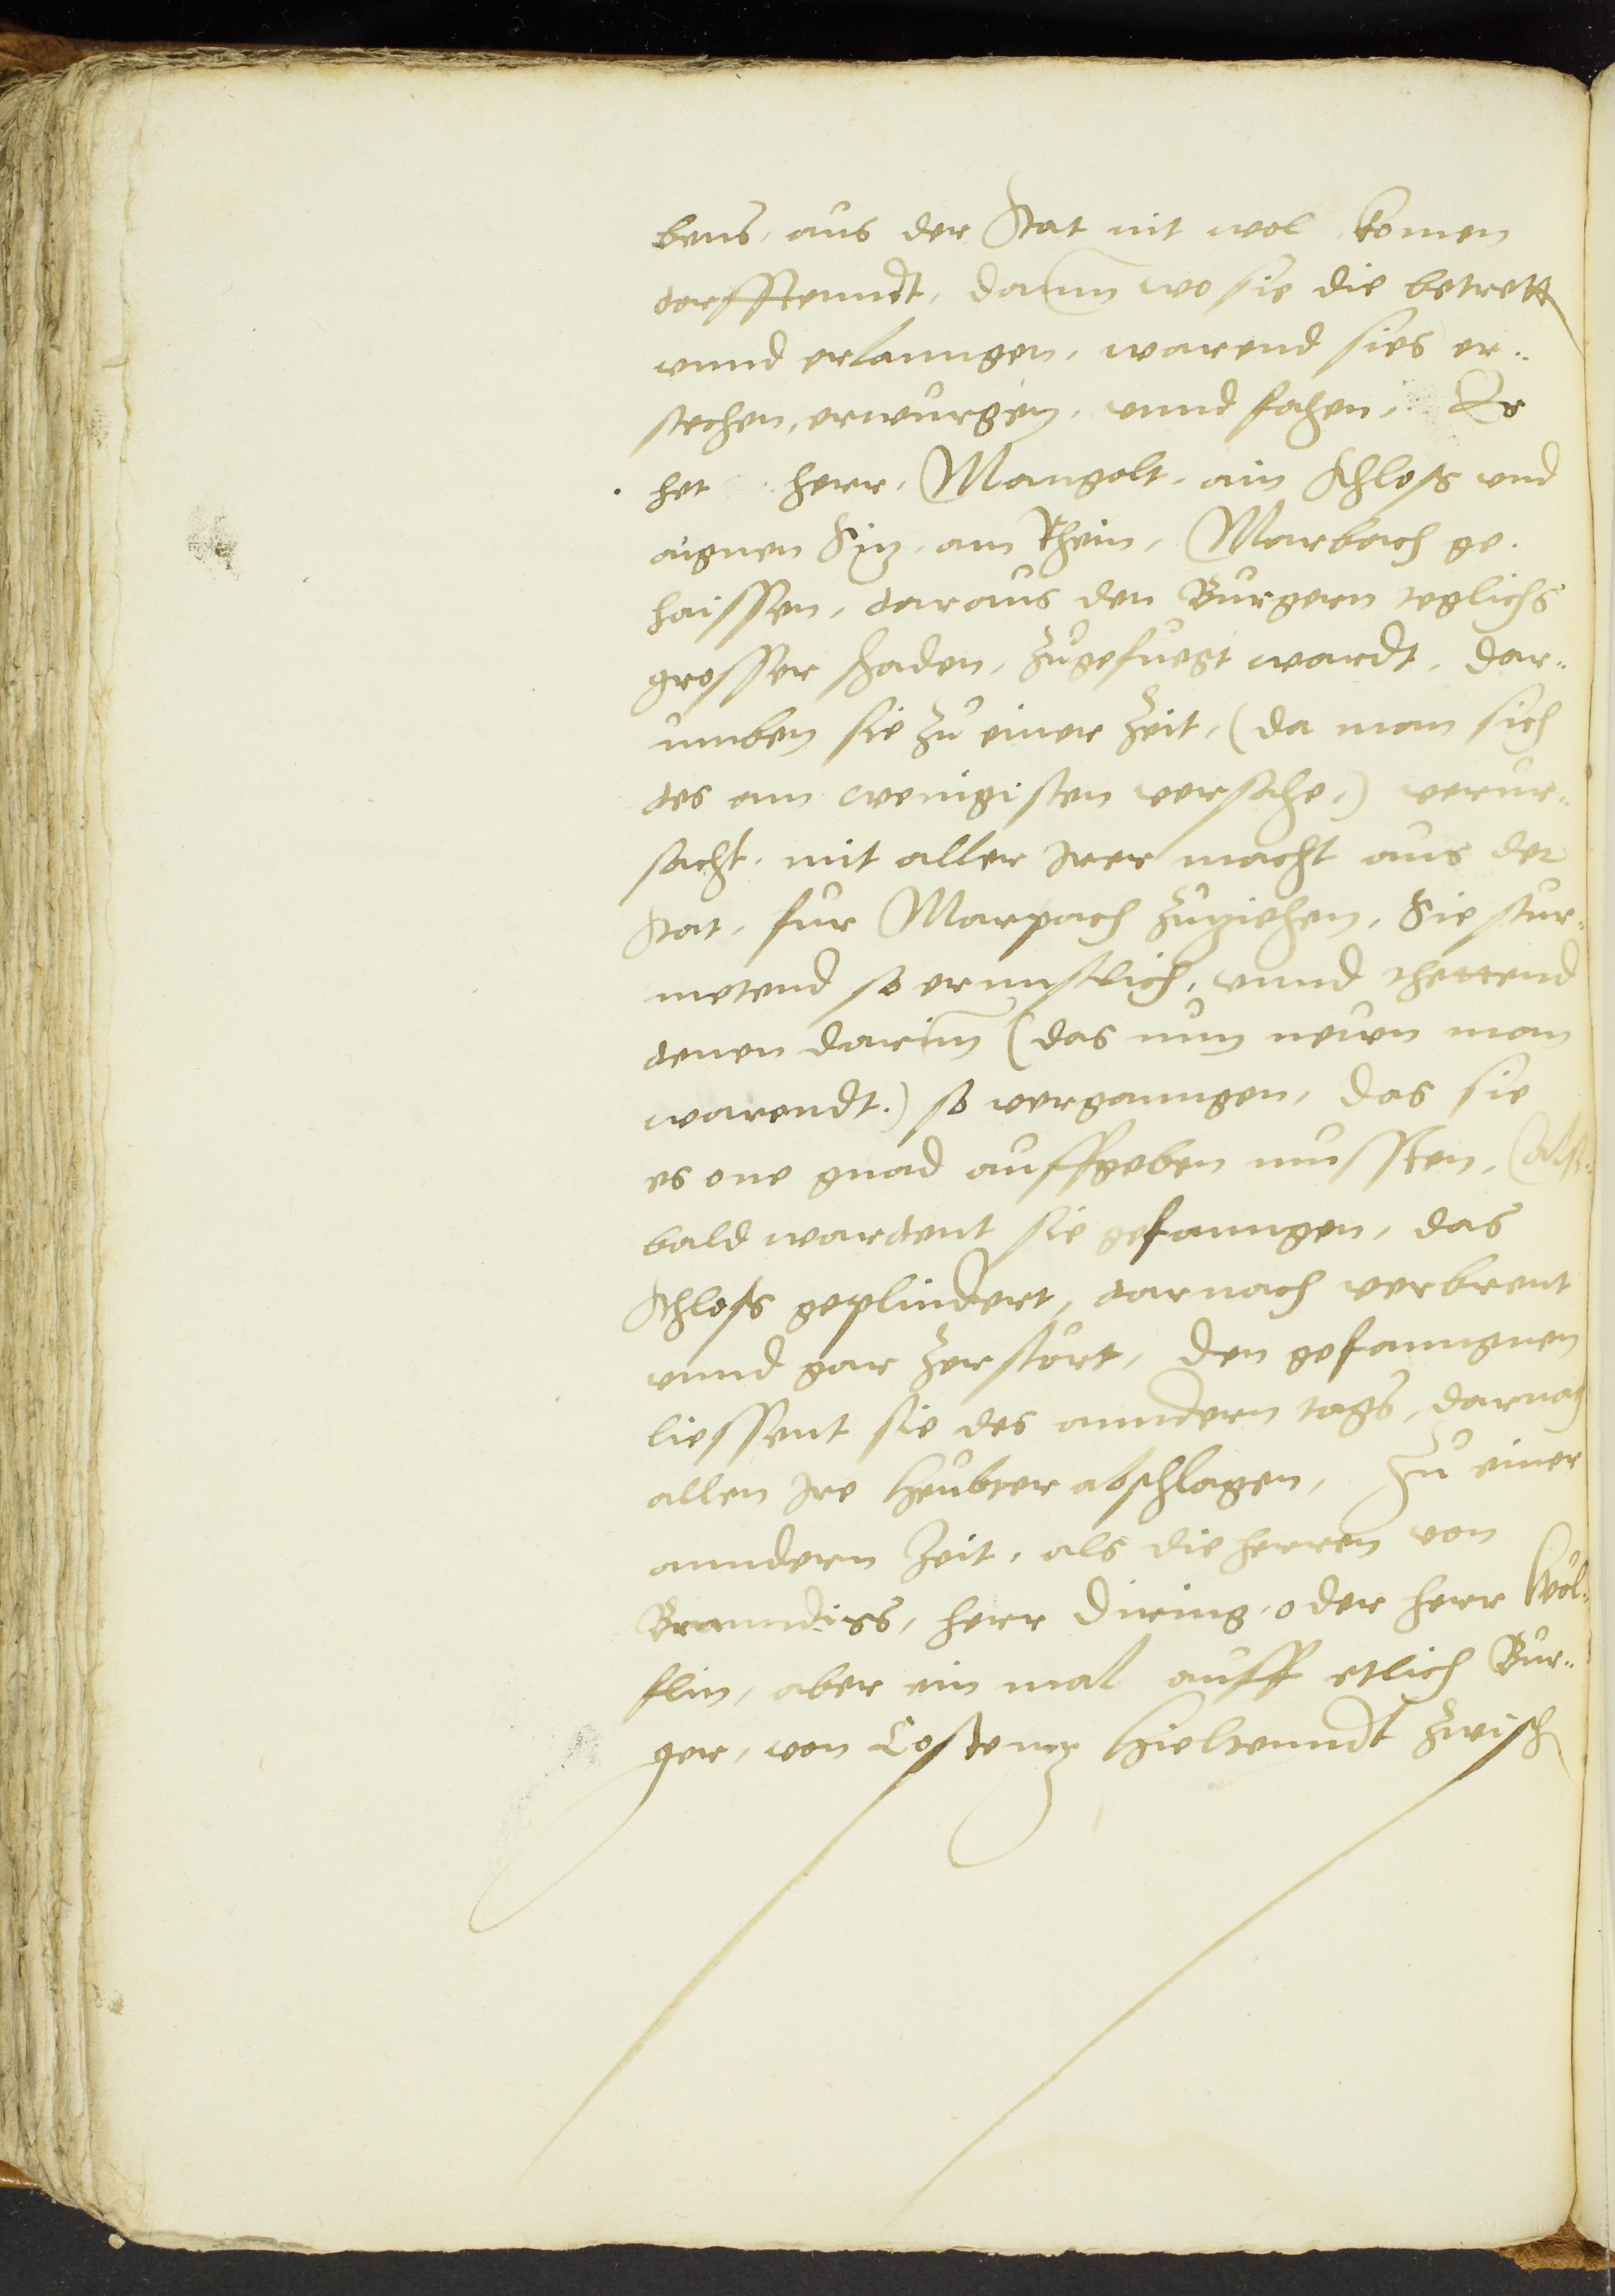 bens, aus der Stat nit wol komen
dorfftenndt, dann wo sie die betrett
vnnd erlanngen, warend sies er¬
stechen, erwurgen, vnnd fahen, Er
het herr, Mangolt, ain Schloß vnd
aignen Siz, am Rhein, Marbach ge¬
haissen, daraus den Burgern teglichs
grosser schaden, zugefuegt wardt, dar¬
umben sie zu einer Zeit, (da man sich
des am wenigisten versahe,) verur¬
sacht, mit aller Jrer macht aus der
Stat, fur Marpach zuziehen, Sie stur¬
metend so ernnstlich, vnnd thettend
denen darinn (das nun neun man
warendt.) so verganngen, das sie
es one gnad auffgeben mussten, Als¬
bald wardent sie gefanngen, das
Schloß geplindert, darnach verbrent
vnnd gar zerstört, den gefanngnen
liessent sie des anndern tags, darnach
allen Jre Heubter abschlagen, Zu einer
anndern Zeit, als die herren von
Branndiss, herr During, oder herr Wöl¬
flin, aber ein mal auff etlich Bur¬
ger, von Costennz Hieltenndt zwisch